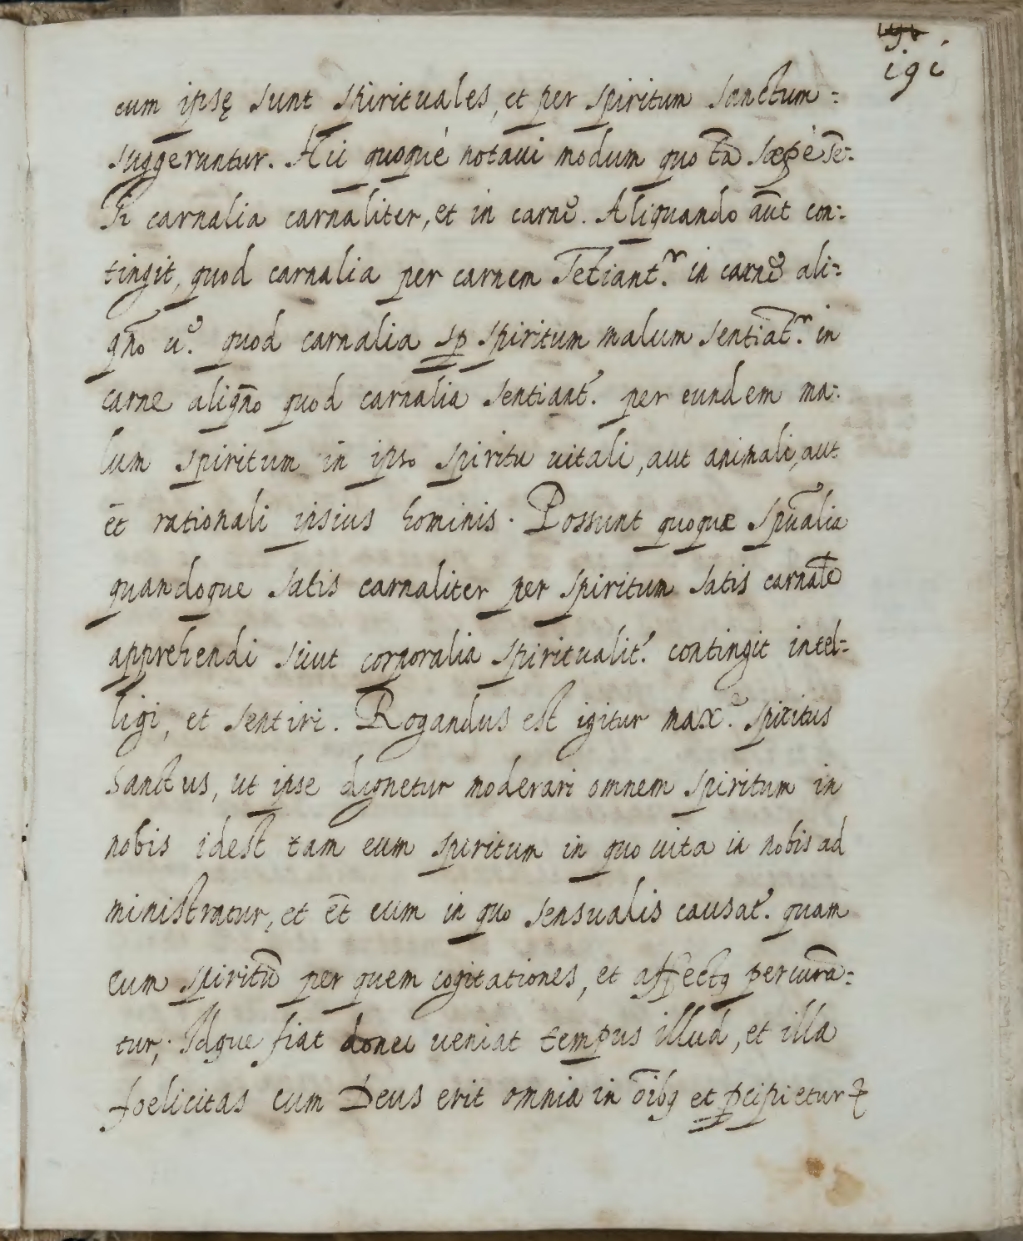 191
cum ipsę sunt spirituales, et per spiritum sanctum
suggeruntur. Hii quoquè notaui modum quo tā sæpè sē-
carnalia carnaliter, et in carnē. Aliquando aūt con-
tingit, quod carnalia per carnem in carnē ali-
qño u.º quod carnalia spiritum malum sentiāt.r in
carne aliqño quod carnalia sentiant.r per eundem ma-
lum spiritum in ipso spiritu uitali, aut animali, aut
ēt rationali ipsius hominis. Possunt quoquæ spūalia
quandoque satis carnaliter per spiritum satis carnalē
apprehendi siuut corporalia spiritualit.r contingit intel-
ligi, et sentiri. Rogandus est igitur max.e spiritus
Sanctus, ut ipse dignetur moderari omnem spiritum in
nobis idest tam eum spiritum in quo uita in nobis ad
ministratur, et ēt eum in quo sensualis causat.r quam
eum spiritū per quem cogitationes, et affectq percurā-
tur; Idque fiat donei ueniat tempus illud, et illa
foelicitas cum Deus erit omnia in ōibq et pcipietur